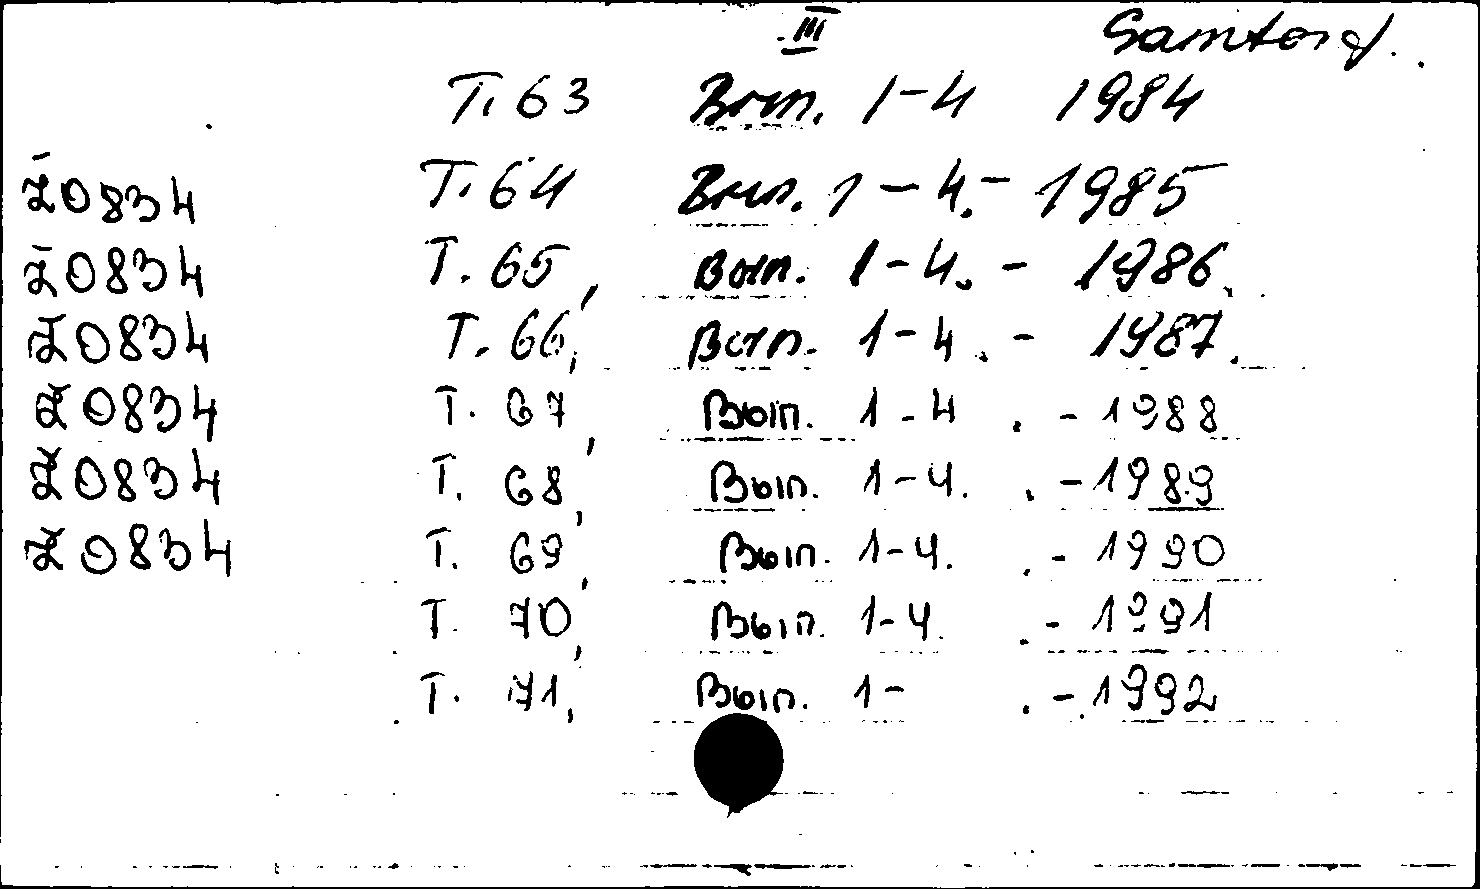 III Samtová.
Т. 63 Вып. 1-4 1984
Z0834 Т. 64 Вып. 1-4.- 1985
Z0834 Т. 65, Вып. 1-4. - 1986.
Z0834 Т. 66, Вып. 1-4. - 1987.
Z0834 Т. 67, Вып. 1-4. - 1988
Z0834 Т. 68, Вып. 1-4. - 1989
Z0834 Т. 69, Вып. 1-4. - 1990
Т. 70, Вып. 1-4. - 1991
Т. 71, Вып. 1- . - 1992